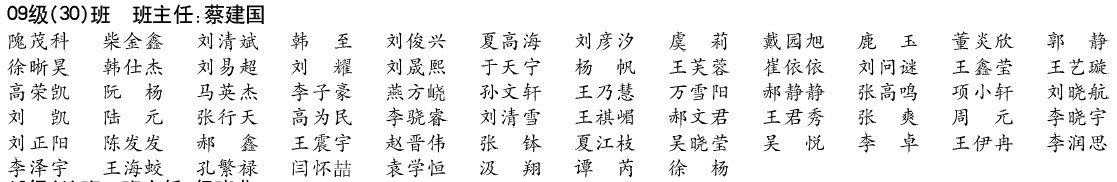 09级(30)班 班主任:蔡建国
隗茂科 柴金鑫 刘清斌 韩至 刘俊兴 夏高海 刘彦汐 虞莉 戴园旭 鹿玉 董炎欣 郭静
徐晰昊 韩仕杰 刘易超 刘耀 刘晟熙 于天宁 杨帆 王芙蓉 崔依依 刘问谜 王鑫莹 王艺璇
高荣凯 阮杨 马英杰 李子豪 燕方峣 孙文轩 王乃慧 万雪阳 郝静静 张高鸣 项小轩 刘晓航
刘凯 陆元 张行天 高为民 李骁睿 刘清雪 王祺嵋 郝文君 王君秀 张爽 周元 李晓宇
刘正阳 陈发发 郝鑫 王震宇 赵晋伟 张钵 夏江枝 吴晓莹 吴悦 李卓 王伊冉 李润思
李泽宇 王海蛟 孔繁禄 闫怀喆 袁学恒 汲翔 谭芮 徐杨